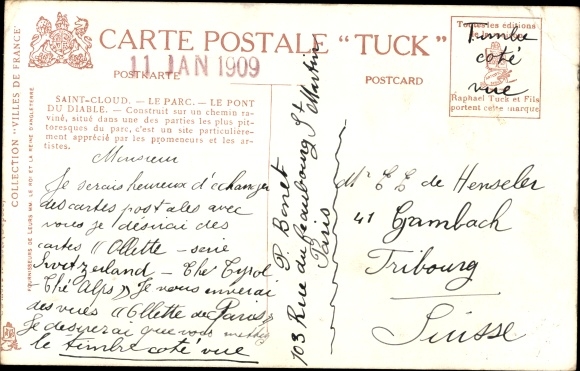 CARTE POSTALE "TUCK"
11 JAN 1909
POSTKARTE
POSTCARD
Toutes les éditions
Raphael Tuck et Fils
portent cette marque
Timbre
coté
vue
COLLECTION "VILLES DE FRANCE"
FOURNISSEURS DE LEURS MM. LE ROI ET LA REINE D'ANGLETERRE
SAINT-CLOUD. — LE PARC. — LE PONT
DU DIABLE. — Construit sur un chemin ra-
viné, situé dans une des parties les plus pit-
toresques du parc, c'est un site particulière-
ment apprécié par les promeneurs et les ar-
tistes.
Monsieur
Je serais heureux d'échanger
des cartes postales avec
vous je désirai des
cartes "Ollette - serie
Switzerland - The Tyrol
The Alps" Je vous enverai
des vues "Ollette de Paris"
Je desirerai que vous mettiez
le timbre coté vue
P. Bonet
103 Rue du Faubourg St Martin
Paris
Mr E E de Henseler
41 Grambach
Fribourg
Suisse